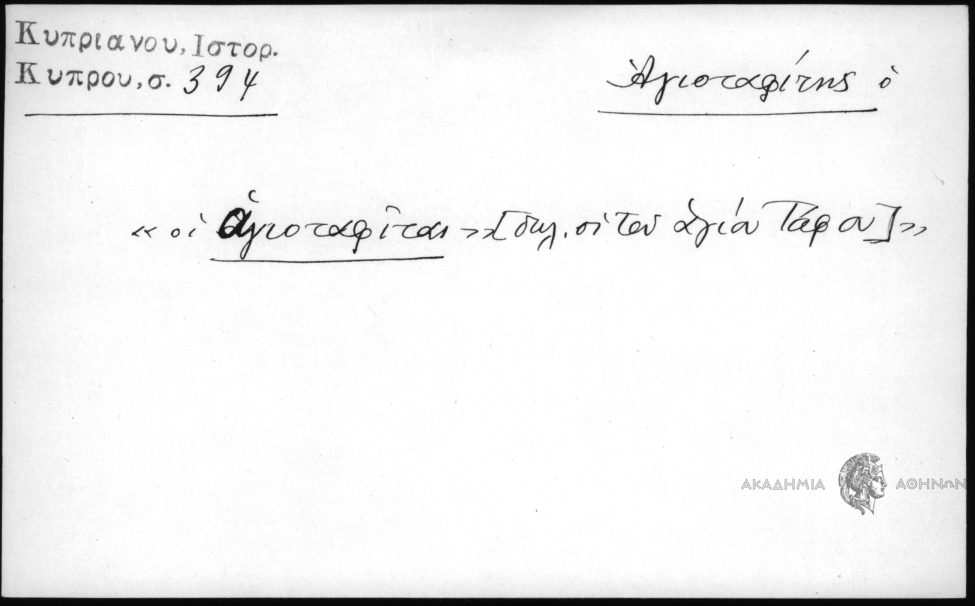 Κυπριανου, Ιστορ.
Κυπρου, σ. 394
Ἁγιοταφίτης ὁ
« οἱ ἁγιοταφῖται »[δηλ. οἱ τοῦ ἁγίου Τάφου]»
ΑΚΑΔΗΜΙΑ ΑΘΗΝΩΝ